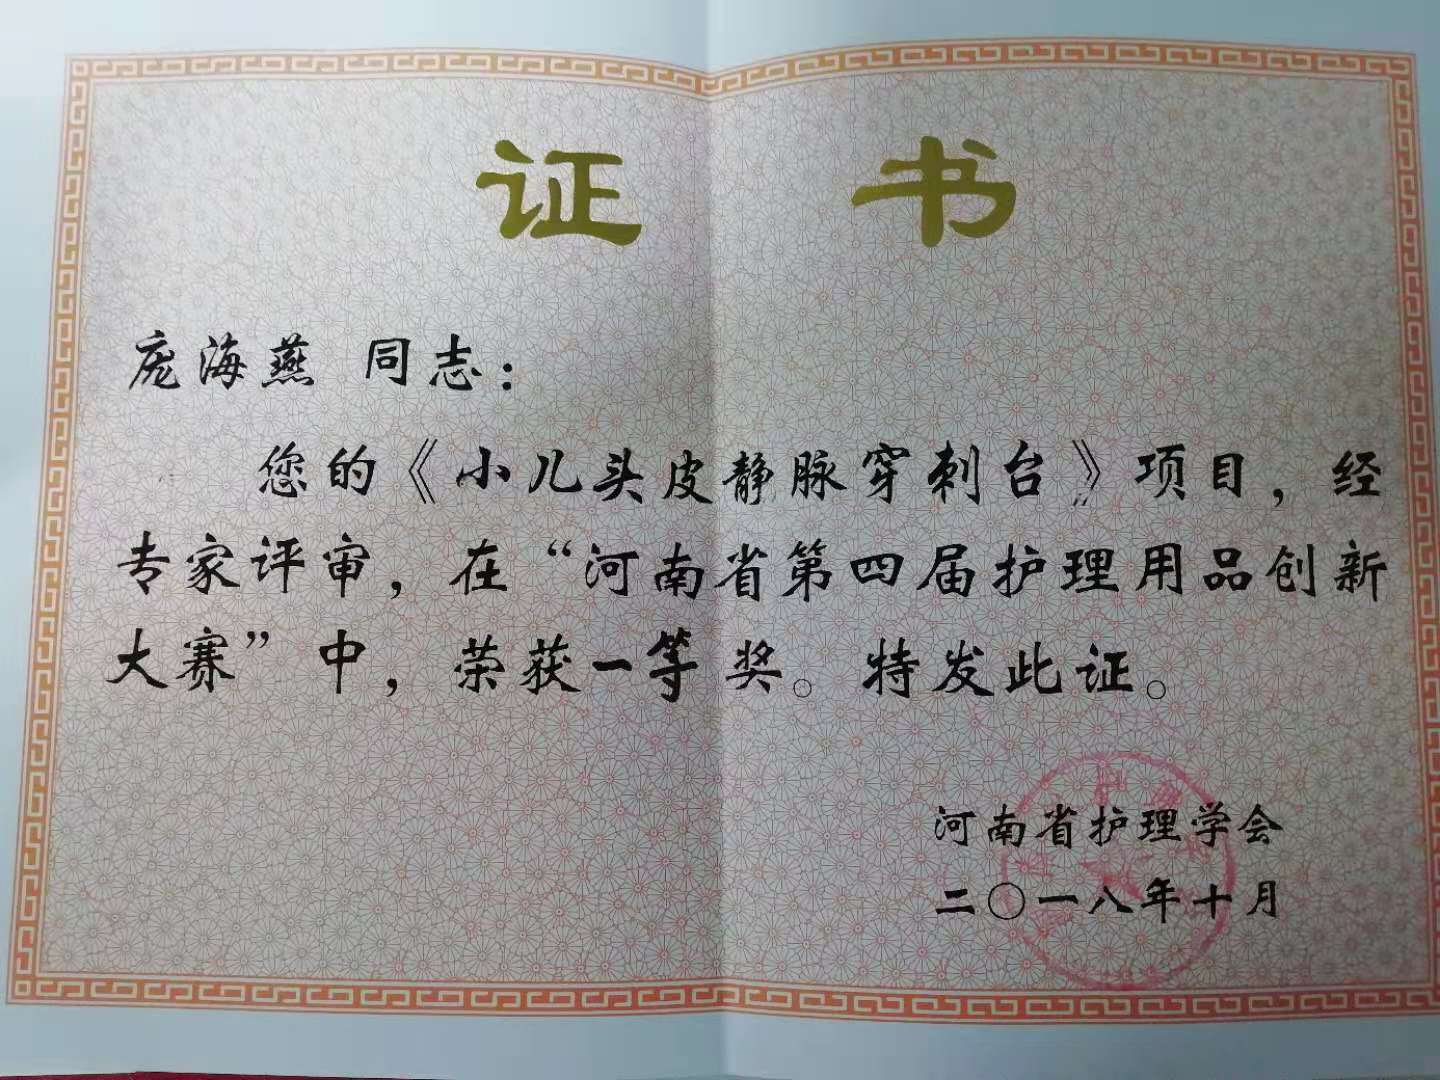 证书
庞海燕 同志：
您的《小儿头皮静脉穿刺台》项目，经
专家评审，在“河南省第四届护理用品创新
大赛”中，荣获一等奖。特发此证。
河南省护理学会
二〇一八年十月